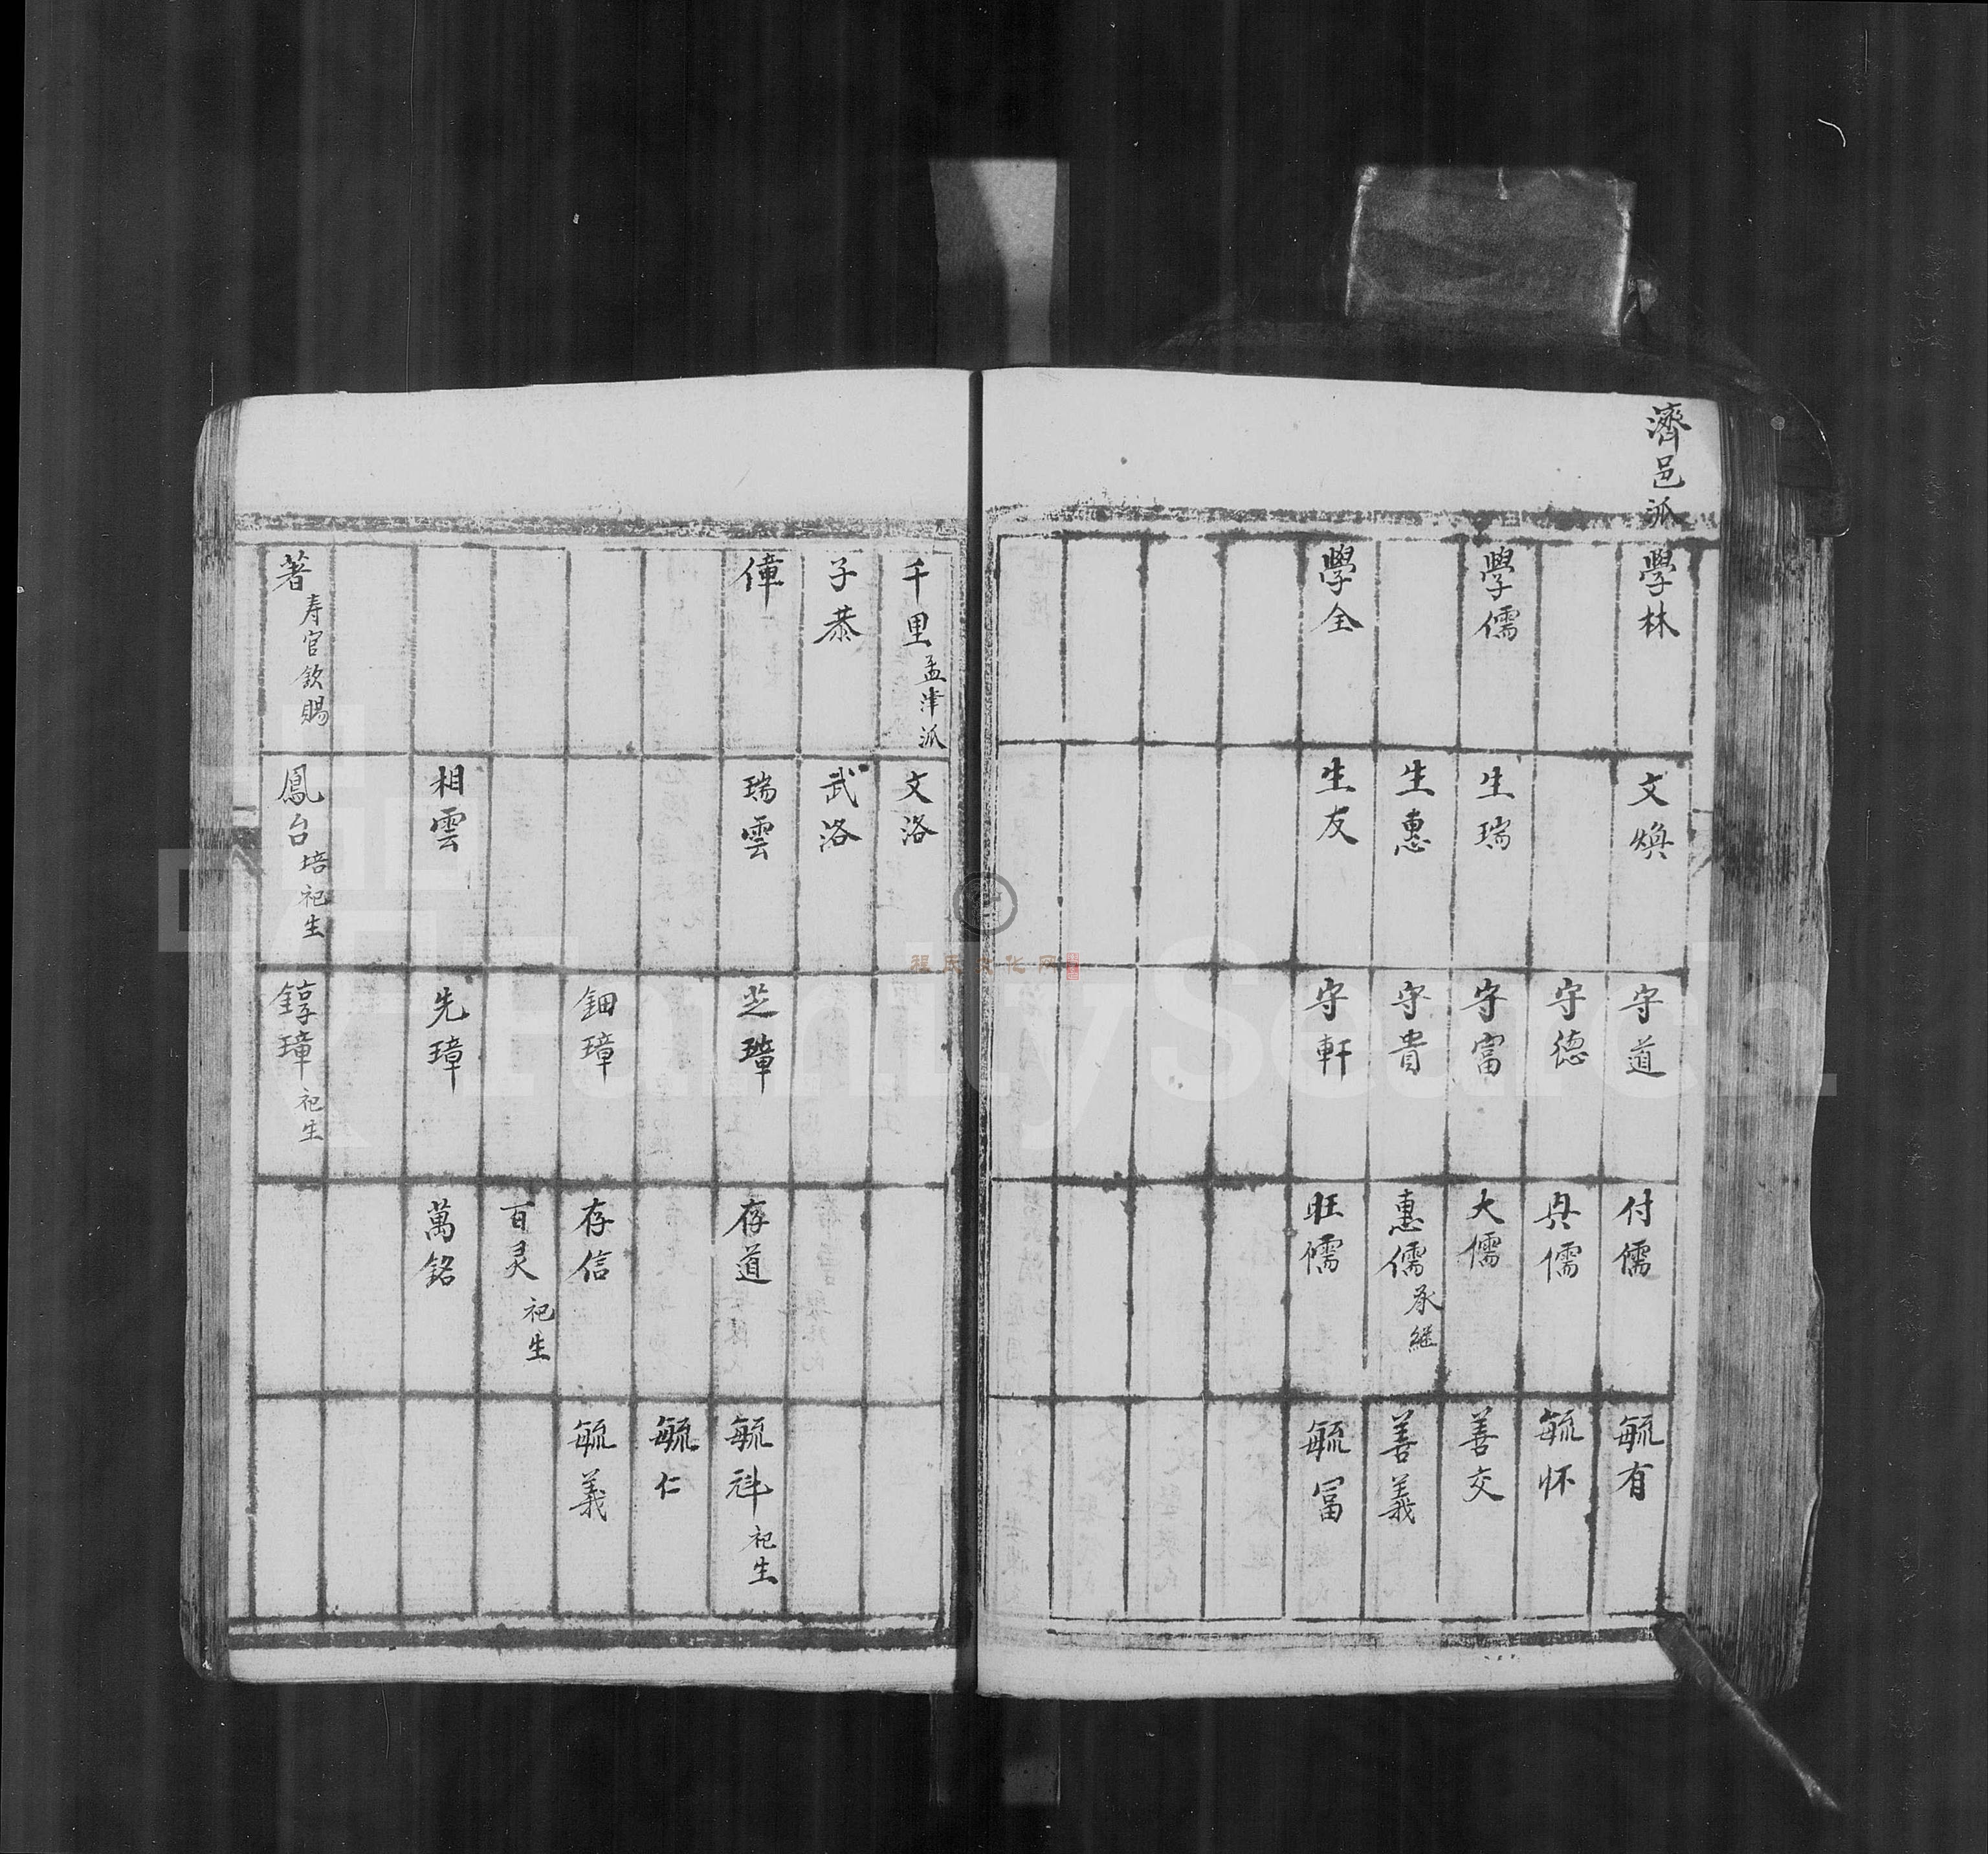 濟邑派
學林
文煥
守道
付儒
毓有
守德
典儒
毓怀
學儒
生瑞
守富
大儒
善交
生惠
守貴
惠儒 承繼
善義
學全
生友
守軒
旺儒
毓冨
千里 孟津派
文洛
子恭
武洛
偉
瑞雲
芝璋
存道
毓科 祀生
毓仁
鈿璋
存信
毓義
百灵 祀生
相雲
先璋
萬銘
著 寿官欽賜
鳳台 培祀生
錞璋 祀生
程氏文化网
FamilySearch